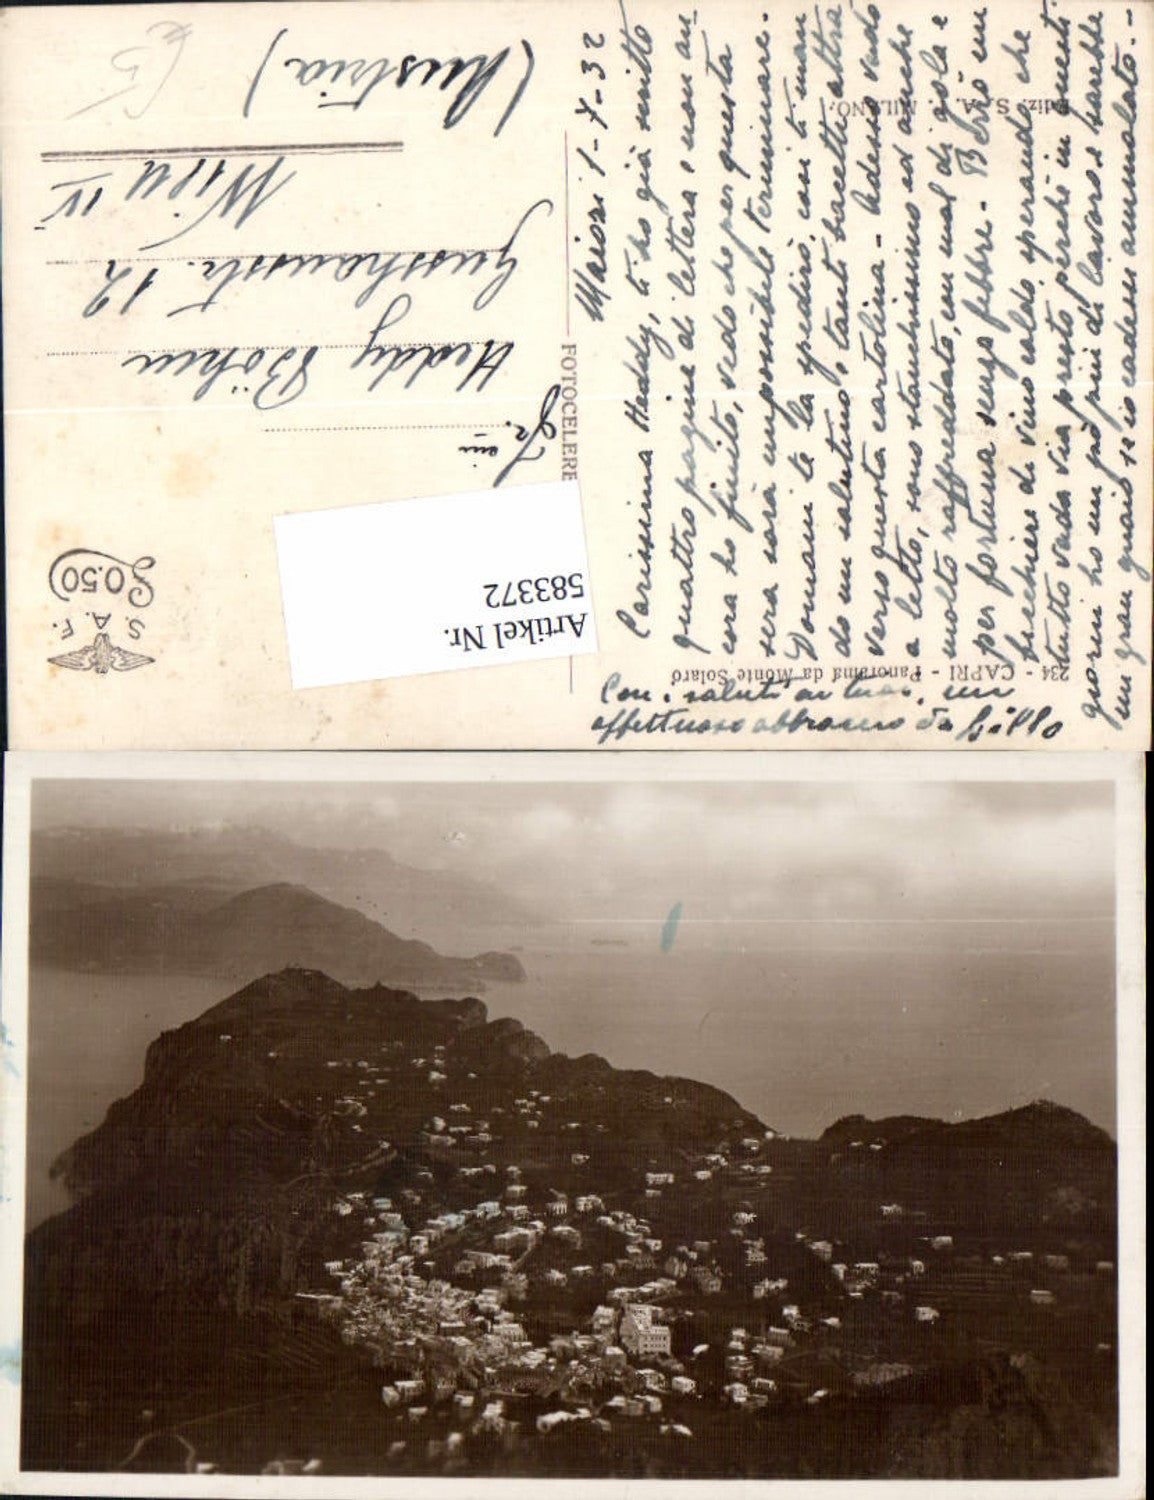 234 - CAPRI - Panorama da Monte Solaro
Ediz. S. A. F. MILANO.
FOTOCELERE
S. A. F.
0.50
Artikel Nr.
583372
Maiori 1-7-32
Carissima Heddy, ti ho già scritto
quattro pagine di lettera e non an-
cora ho finito, vedo che per questa
sera sarà impossibile terminare.
Domani te la spedirò, così ti man
do un salutino e tanti bacetti attra
verso questa cartolina - Adesso vado
a letto, sono stanchissimo ed anche
molto raffreddato, con mal di gola e
per fortuna senza febbre - Berrò un
bicchiere di vino caldo sperando che
tutto vada via presto perchè in questi
giorni ho un pò più di lavoro e sarebbe
un gran guaio se io cadessi ammalato. -
Con i saluti ai tuoi, un
affettuoso abbraccio da Lillo
Fr.
Heddy Böhm
Gusshausstr. 12
Wien IV
(Austria)
€5